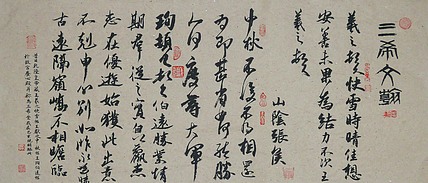 三希文翰
羲之頓首快雪時晴佳想
安善未果為結力不次王
羲之頓首
山陰張侯
中秋不復不得相
為即甚省如何然勝
人何慶等大軍
珣頓首頓首伯遠勝業情
期群從之寶自以羸患
志在優遊始獲此出意
不剋申分別如昨永為疇
古遠隔嶺嶠不相瞻臨